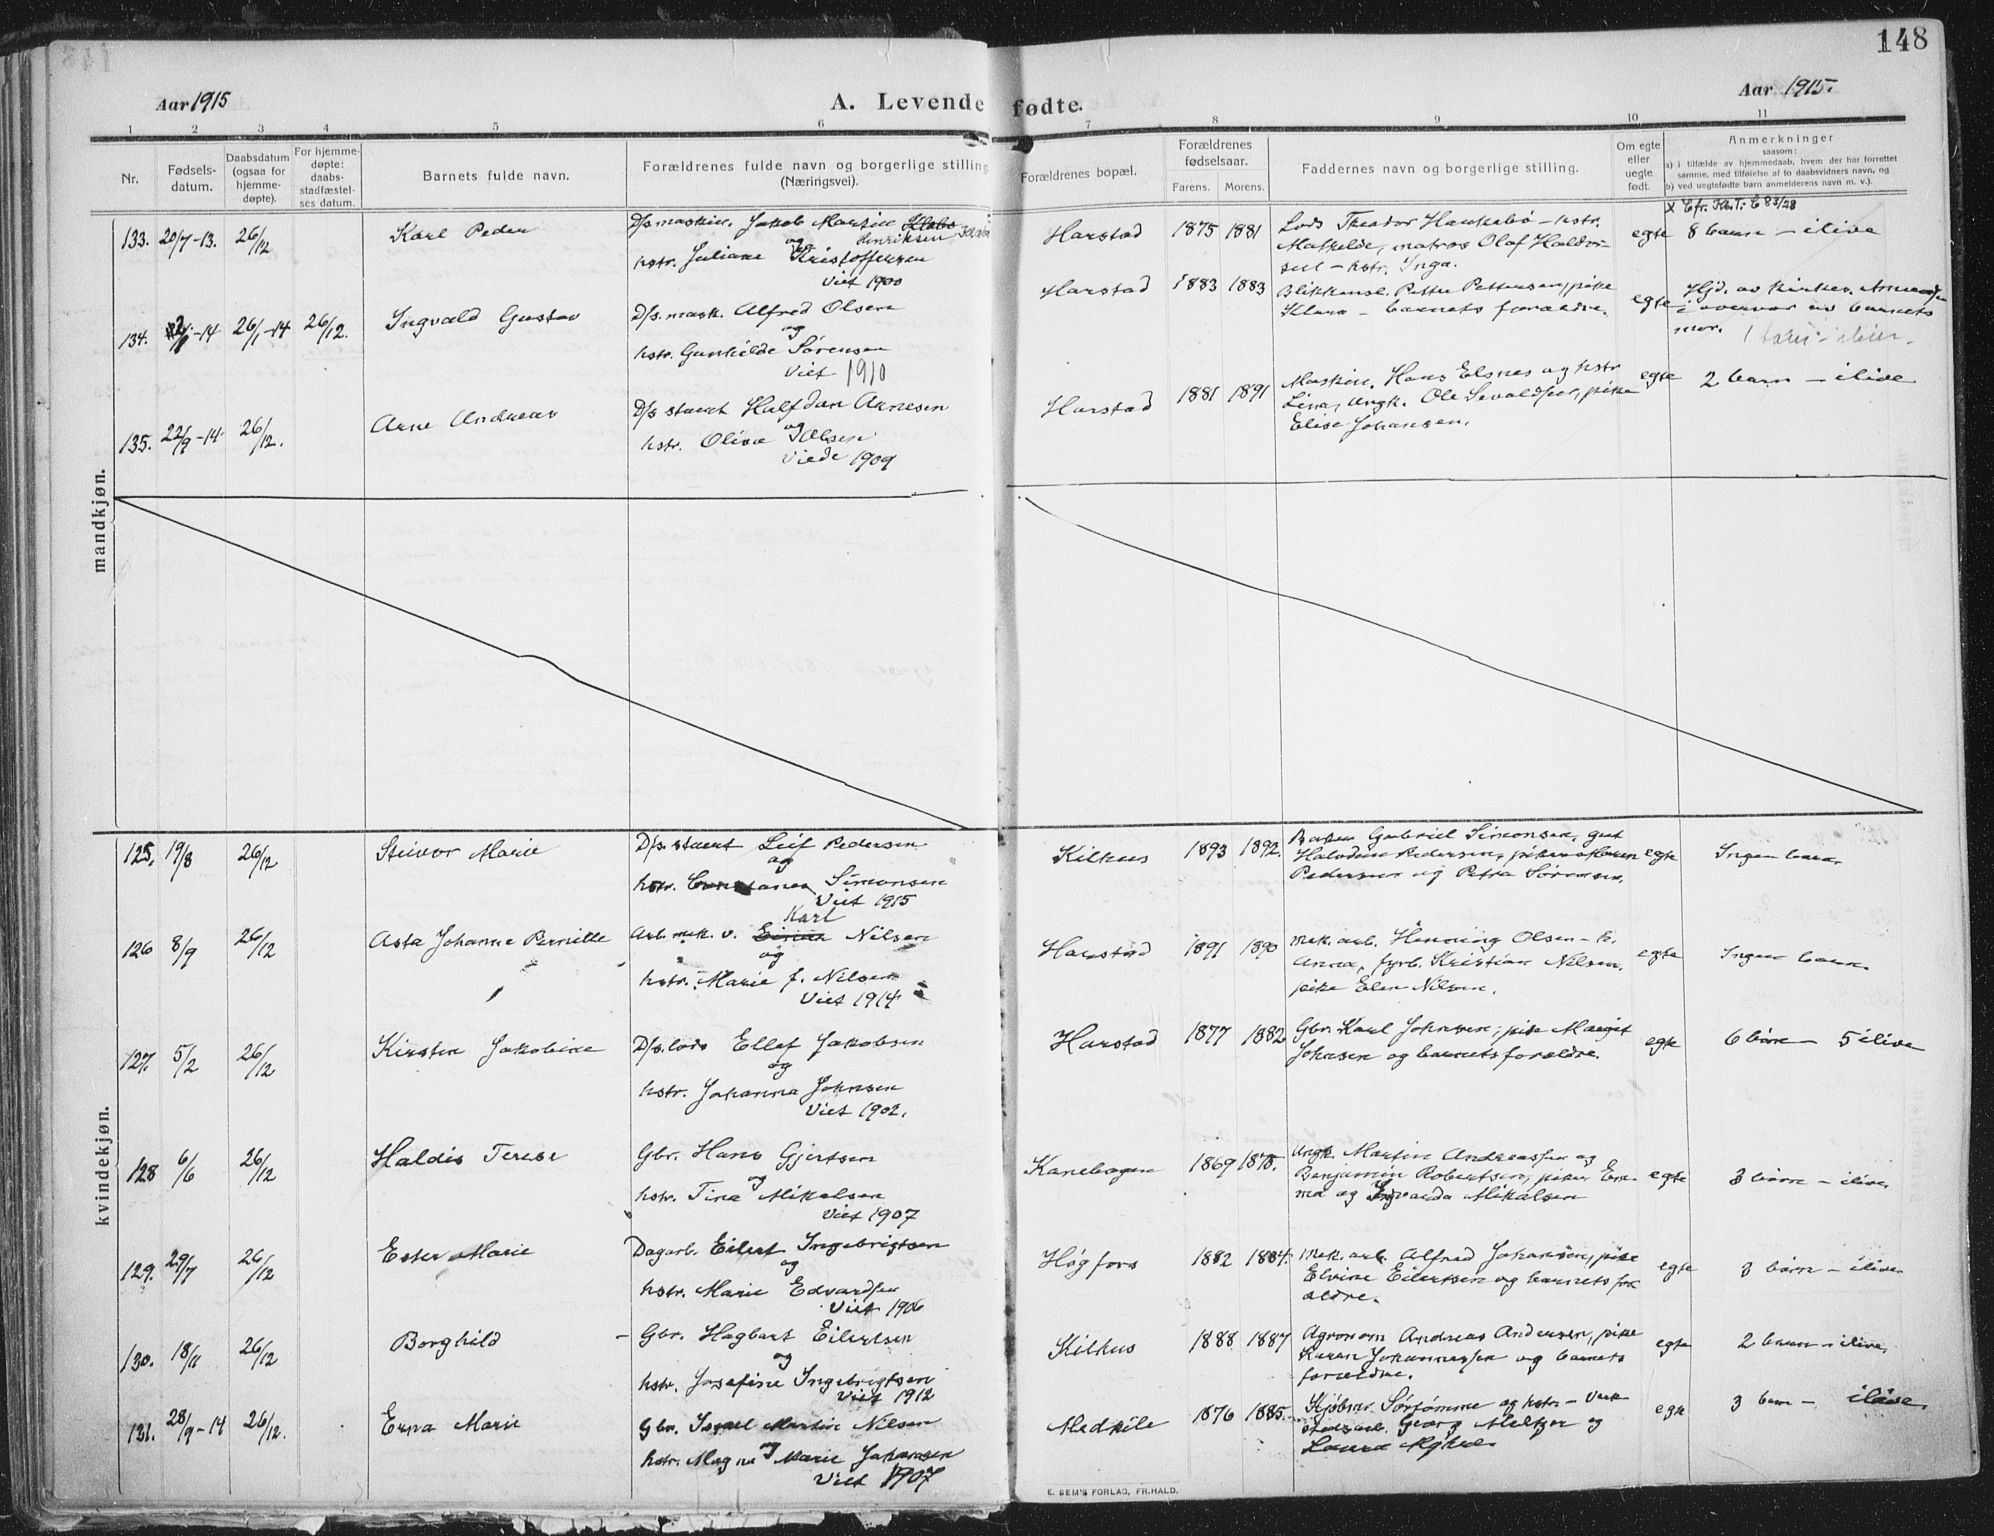 148
Aar 1915
A. Levende fødte.
Aar 1915.
1 2 3 4 5 6 7 8 9 10 11
Nr.
Fødsels-
datum.
Daabsdatum
(ogsaa for
hjemme-
døpte).
For hjemme-
døpte:
daabs-
stadfæstel-
ses datum.
Barnets fulde navn.
Forældrenes fulde navn og borgerlige stilling
(Næringsvei).
Forældrenes bopæl.
Forældrenes
fødselsaar.
Farens. Morens.
Faddernes navn og borgerlige stilling.
Om egte
eller
uegte
født.
Anmerkninger
saasom:
a) i tilfælde av hjemmedaab, hvem der har forrettet
samme, med tilføielse af to daabsvidners navn, og
b) ved uegtefødte barn anmelderens navn m. v.).
mandkjøn.
133. 20/7-13. 26/12 Karl Peder
D/s. maskin. Jakob Martin
Henriksen
og
hstr. Juliane Kristoffersen
Viet 1900
Harstad 1875 1881
Lods Theodor - hstr.
Mathilde, matros Olaf Haldor-
sen - hstr. Inga.
egte
8 barn - ilive
134. -14 26/1-14 26/12. Ingvald Gustav
D/s. mask. Alfred Olsen
og
hstr. Gunhilde Sørensen
Viet 1910
Harstad 1883 1883
Blikkensl. Petter Pettersen, pike
Klara - barnets forældre.
egte
Hjd. av kirkes.
i overvær av barnets
mor.
135. 22/9-14 26/12. Arne Andreas
D/s stuert Halfdan Arnesen
og
hstr. Oliva Olsen
Viede 1909
Harstad 1881 1891
Maskin. Hans Elsnes og hstr
Lina, ungk. Ole Sevaldsen, pike
Elise Johansen.
egte
2 barn - ilive
kvindekjøn.
125, 19/8 26/12 Steinvor Marie
D/s. stuert Leif Pedersen
og
hstr. Simonsen
Viet 1915
Kilhus 1893 1892.
Gabriel Simonsen, gut
Halvdan Pedersen, piker Maren
Pedersen og Petra Sørensen.
egte
Ingen barn.
126 8/9 26/12 Asta Johanne Pernille
Karl
Arb. mek. v. Nilsen
og
hstr. Marie f. Nilsen
Viet 1914
Harstad 1891 1890
mek. arb. Henning Olsen - h.
Anna, fyrb. Kristian Nilsen,
pike Elen Nilsen.
egte
Ingen barn.
127. 5/2 26/12 Kirsten Jakobine
D/s. lods Ellef Jakobsen
og
hstr. Johanna Johnsen
Viet 1902.
Harstad 1877 1882
Gbr. Karl Johnsen, pike Margit
Johnsen og barnets forældre.
egte
6 barn - 5 ilive
128 6/6 26/12 Haldis Terese
Gbr. Hans Gjertsen
og
hstr. Tina Mikalsen
Viet 1907
Kanebogen 1869 1878.
Ungk. Martin Andreassen og
Benjamin Robertsen, piker Em-
ma og Ingvarda Mikalsen
egte
3 barn - ilive
129. 29/7 26/12 Ester Marie
Dagarb. Eilert Ingebrigtsen
og
hstr. Marie Edvardsen
Viet 1906
Høgfors 1882 1884.
mek. arb. Alfred Johansen, pike
Elvine Eilertsen og barnets for-
ældre.
egte
3 barn - ilive
130. 18/11 26/12 Borghild
- Gbr. Hagbart Eilertsen
og
hstr. Josefine Ingebrigtsen
Viet 1912
Kilhus 1888 1887
Agronom Andreas Andersen, pike
Karen Johannessen og barnets
forældre.
egte
2 barn - ilive.
131. 28/9-14 26/12. Erna Marie
Gbr. Israel Martin Nilsen
og
hstr. Magna Marie Johansen
Viet 1907
Medkile 1876 1885.
Kjøbm. Sørtømme og hstr -
Georg Meltzer og
Laura
egte
3 barn - ilive.
E. SEM'S FORLAG, FR.HALD.